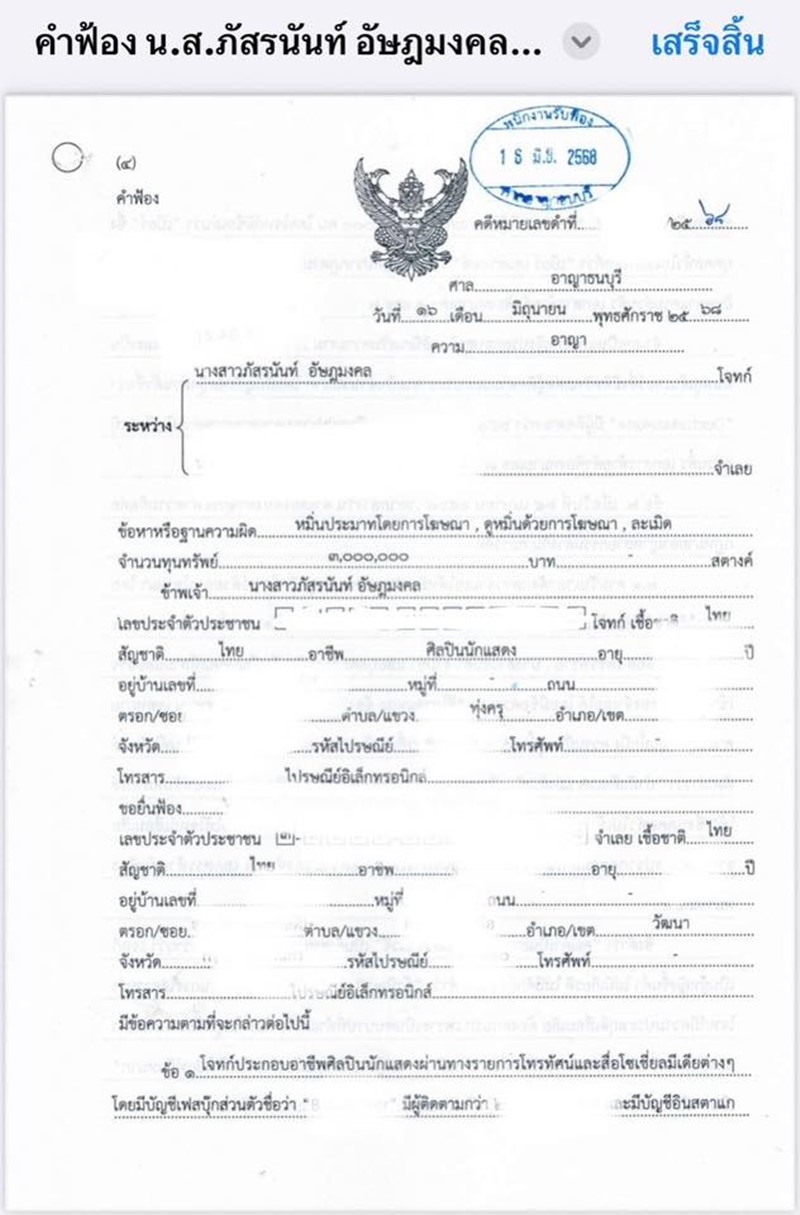 คำฟ้อง น.ส.ภัสรนันท์ อัษฎมงคล... เสร็จสิ้น
พนักงานรับฟ้อง
16 มิ.ย. 2568
(๔)
คำฟ้อง
คดีหมายเลขดำที่.....๒๕๖๘
ศาล อาญาธนบุรี
วันที่ ๑๖ เดือน มิถุนายน พุทธศักราช ๒๕ ๖๘
ความ อาญา
นางสาวภัสรนันท์ อัษฎมงคล โจทก์
ระหว่าง
จำเลย
ข้อหาหรือฐานความผิด หมิ่นประมาทโดยการโฆษณา , ดูหมิ่นด้วยการโฆษณา , ละเมิด
จำนวนทุนทรัพย์ ๓,๐๐๐,๐๐๐ บาท - สตางค์
ข้าพเจ้า นางสาวภัสรนันท์ อัษฎมงคล
เลขประจำตัวประชาชน โจทก์ เชื้อชาติ ไทย
สัญชาติ ไทย อาชีพ ศิลปินนักแสดง อายุ ปี
อยู่บ้านเลขที่ หมู่ที่ - ถนน -
ตรอก/ซอย ตำบล/แขวง ทุ่งครุ อำเภอ/เขต
จังหวัด รหัสไปรษณีย์ โทรศัพท์ -
โทรสาร ไปรษณีย์อิเล็กทรอนิกส์
ขอยื่นฟ้อง
เลขประจำตัวประชาชน จำเลย เชื้อชาติ ไทย
สัญชาติ ไทย อาชีพ อายุ ปี
อยู่บ้านเลขที่ หมู่ที่ ถนน -
ตรอก/ซอย ตำบล/แขวง อำเภอ/เขต วัฒนา
จังหวัด รหัสไปรษณีย์ โทรศัพท์ -
โทรสาร ไปรษณีย์อิเล็กทรอนิกส์
มีข้อความตามที่จะกล่าวต่อไปนี้
ข้อ ๑ โจทก์ประกอบอาชีพศิลปินนักแสดงผ่านทางรายการโทรทัศน์และสื่อโซเชี่ยลมีเดียต่างๆ
โดยมีบัญชีเฟสบุ๊กส่วนตัวชื่อว่า " " มีผู้ติดตามกว่า และมีบัญชีอินสตาแก